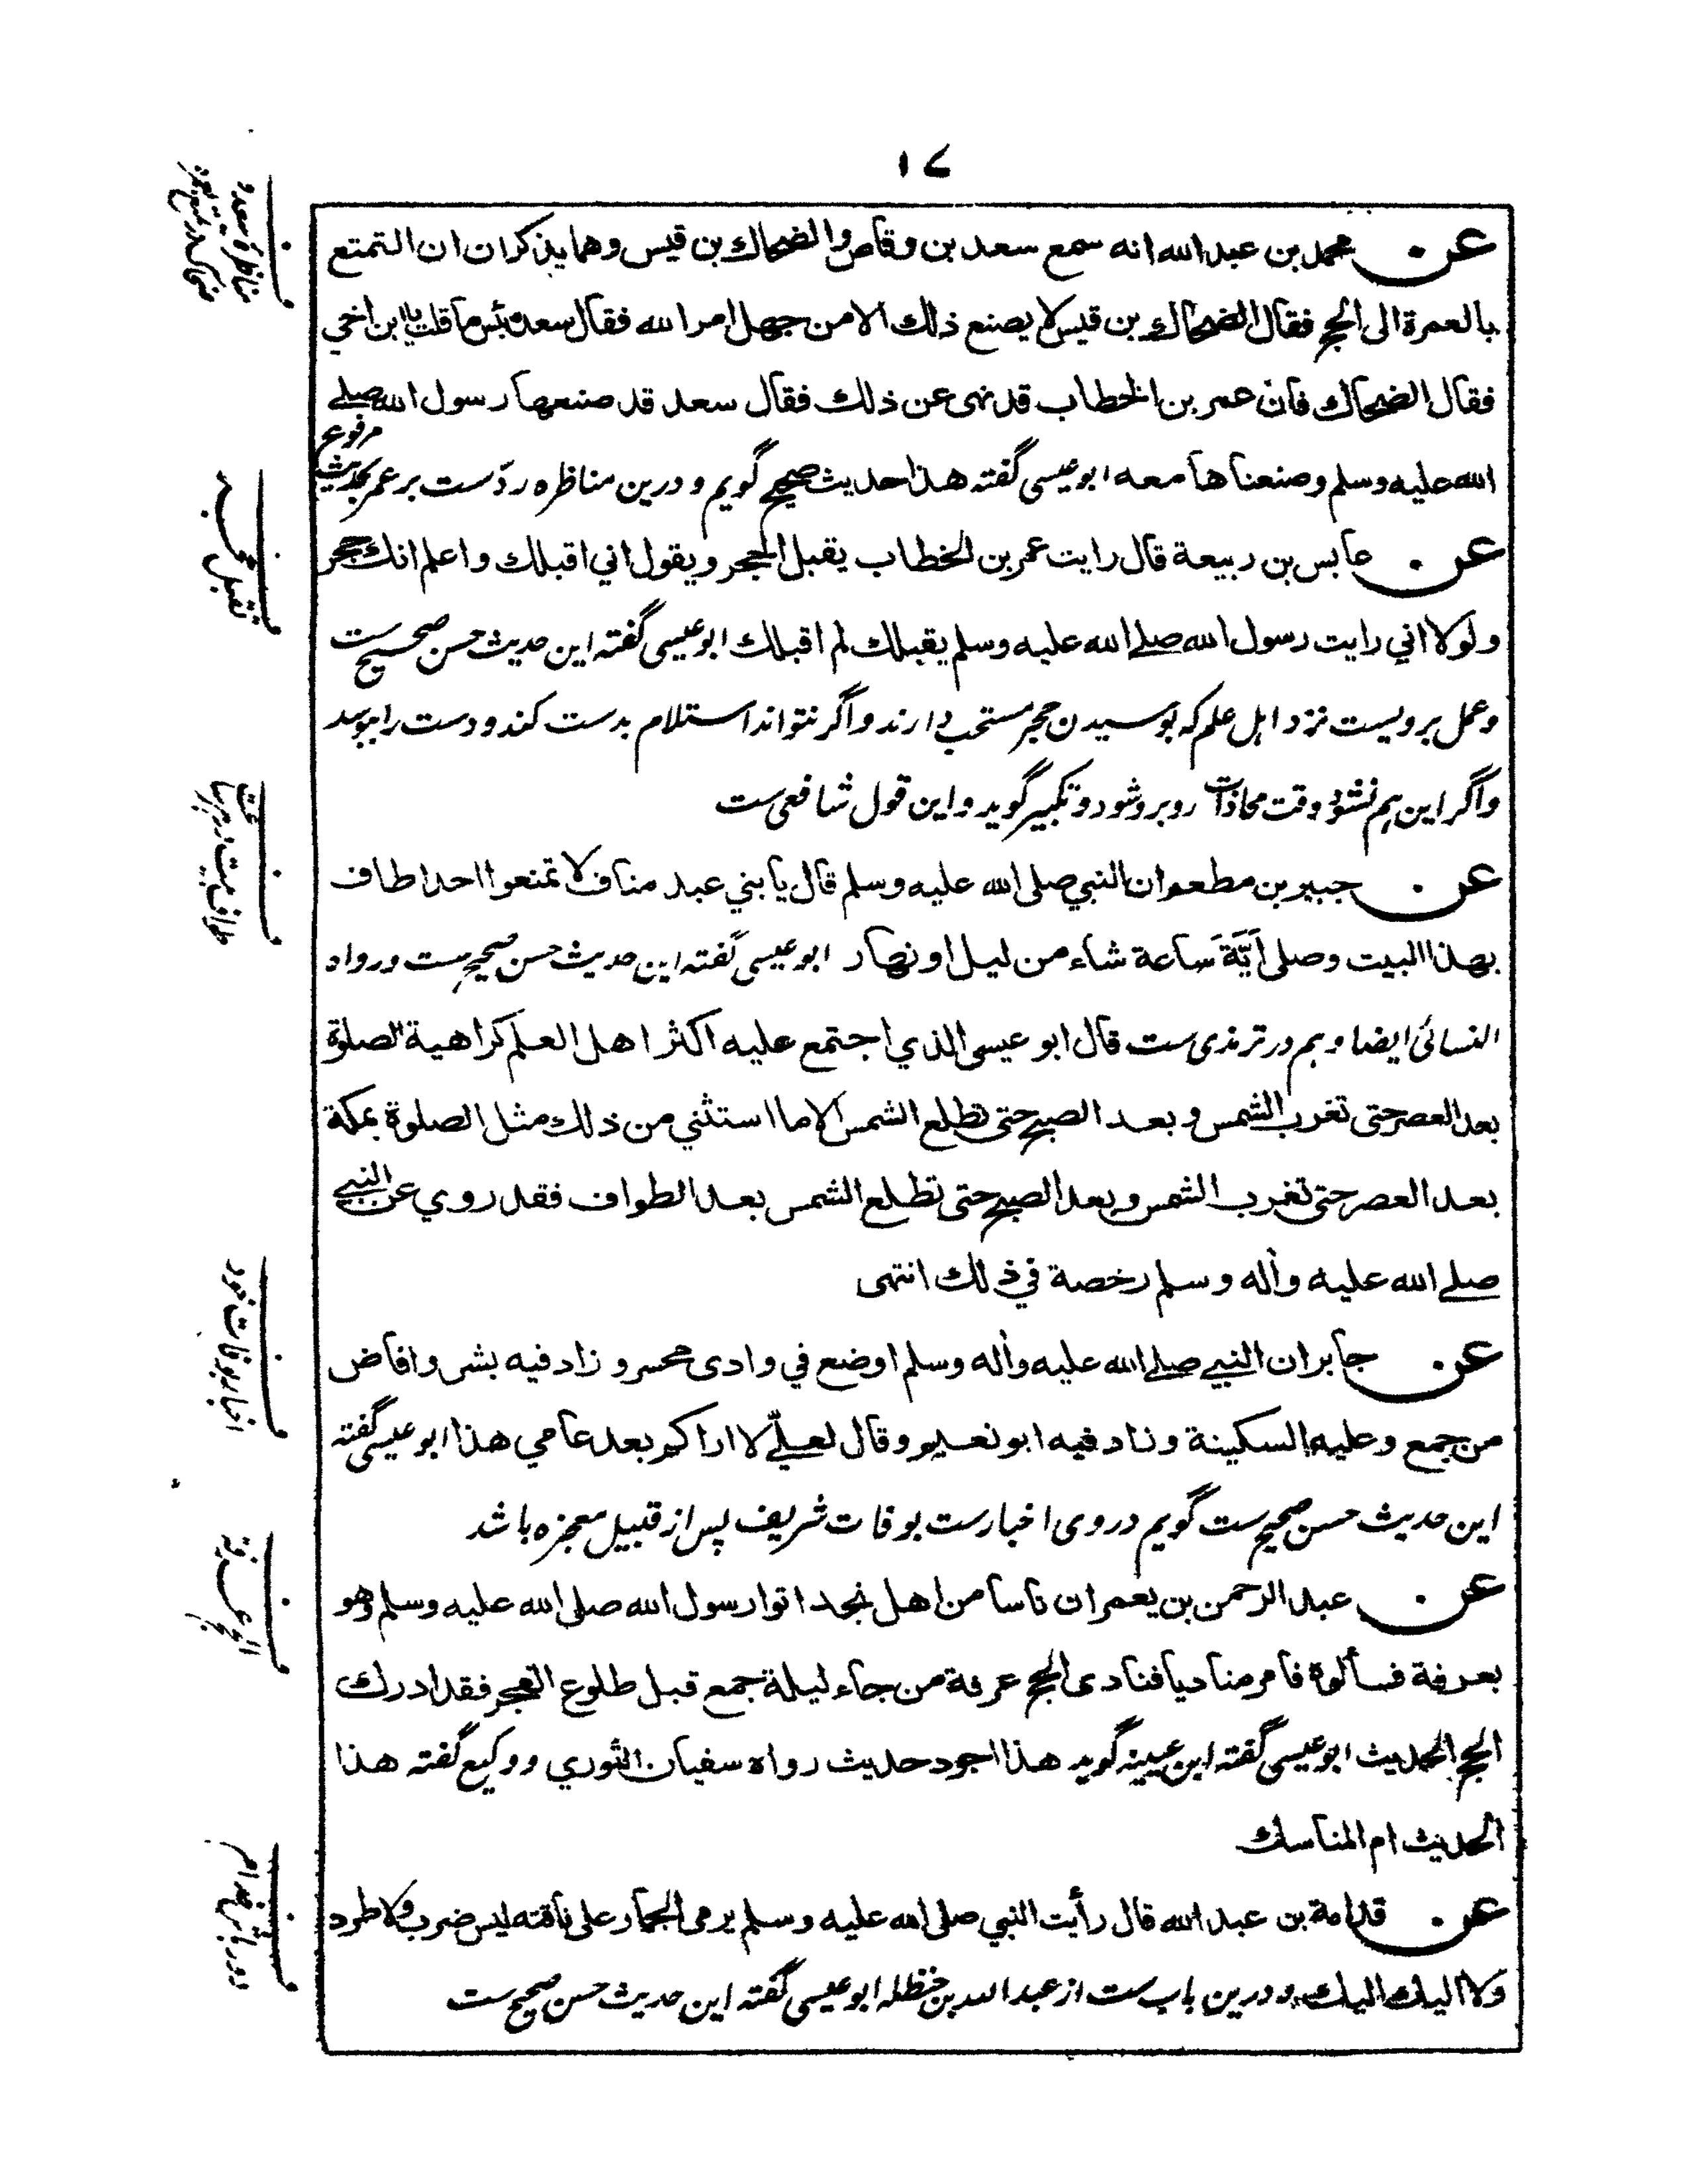 ١٧
عن محمد بن عبد الله انه سمع سعد بن وقاص والضحاك بن قيس وهما يذكران ان التمتع
بالعمرة الى الحج فقال الضحاك بن قيس لا يصنع ذلك الا من جهل امر الله فقال سعد بئس ما قلت يا ابن اخي
فقال الضحاك فان عمر بن الخطاب قد نهى عن ذلك فقال سعد قد صنعها رسول الله صلے
الله عليه وسلم وصنعناها معه ابو عیسی گفته هذا حديث صحيح گویم و درین مناظره ردّست بر عمر بحدیث مرفوع
عن عابس بن ربيعة قال رايت عمر بن الخطاب يقبل الحجر ويقول اني اقبلك واعلم انك حجر
ولولا اني رايت رسول الله صلے الله عليه وسلم يقبلك لم اقبلك ابو عیسی گفته این حدیث حسن صحیح ست
وعمل برویست نزد اہل علم کہ بوسیدن حجر مستحب دارند واگر نتواند استلام بدست کند ودست را ببوسد
واگر این ہم نشود وقت محاذات روبرو شود وتکبیر گوید واین قول شافعی ست
عن جبير بن مطعم ان النبي صلى الله عليه وسلم قال يا بني عبد مناف لا تمنعوا احدا طاف
بهذا البيت وصلى اَيَّةَ ساعة شاء من ليل او نهار ابو عیسی گفته این حدیث حسن صحیح ست ورواه
النسائي ايضا وہم در ترمذی ست قال ابو عيسى الذي اجتمع عليه اكثر اهل العلم كراهية الصلوة
بعد العصر حتى تغرب الشمس وبعد الصبح حتى تطلع الشمس الا ما استثني من ذلك مثل الصلوة بمكة
بعد العصر حتى تغرب الشمس وبعد الصبح حتى تطلع الشمس بعد الطواف فقد روي عن النبي
صلے الله عليه وأله وسلم رخصة في ذلك انتهى
عن جابر ان النبي صلے الله عليه وأله وسلم اوضع في وادى محسر وزاد فيه بشر وافاض
من جمع وعليه السكينة وزاد فيه ابو نعيم وقال لعلّي لا اراكم بعد عامي هذا ابو عیسی گفته
این حدیث حسن صحیح ست گویم دروی اخبارست بوفات شریف پس از قبیل معجزه باشد
عن عبد الرحمن بن يعمر ان ناسا من اهل نجد اتوا رسول الله صلى الله عليه وسلم وهو
بعرفة فسألوه فامر مناديا فنادى الحج عرفة من جاء ليلة جمع قبل طلوع الفجر فقد ادرك
الحج الحديث ابو عیسی گفته ابن عیینه گوید هذا اجود حديث رواه سفيان الثوري ووکیع گفته هذا
الحديث ام المناسك
عن قدامة بن عبد الله قال رأيت النبي صلى الله عليه وسلم يرمى الجمار على ناقته ليس ضرب ولا طرد
ولا اليك اليك ودرین باب ست از عبد الله بن حنظله ابو عیسی گفته این حدیث حسن صحیح ست
ف مناظرۂ سعد و
ف تقبیل حجر
ف طواف بیت در ہر ساعت
ف اخبار بوفات خود
ف الحج عرفة